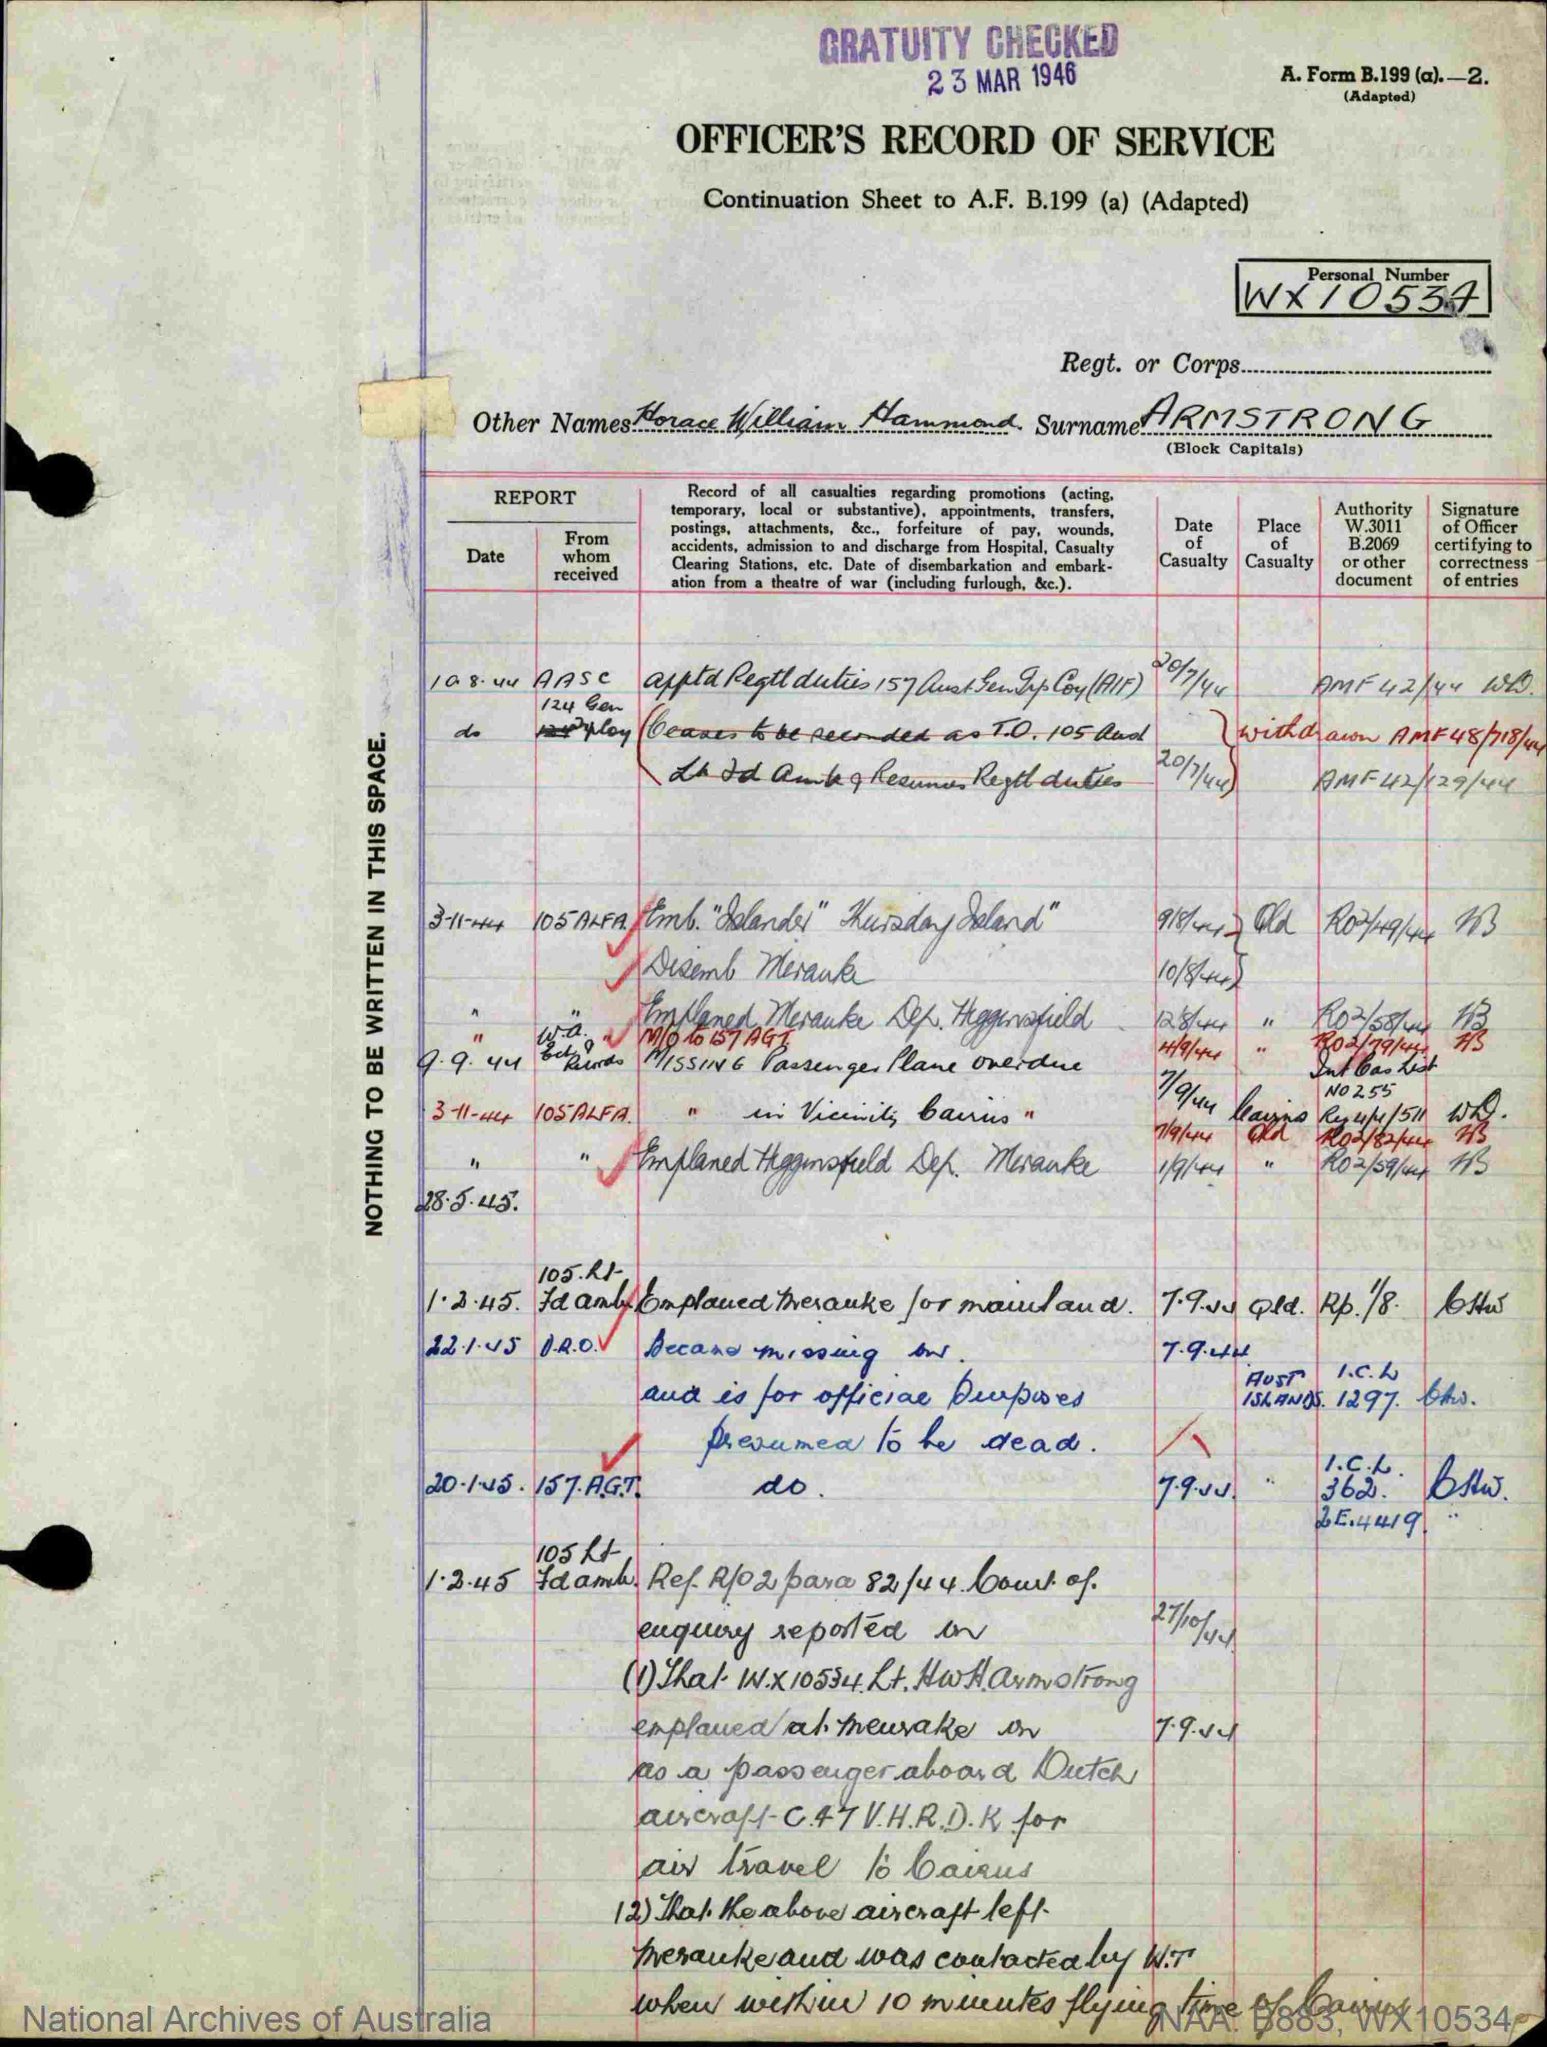 GRATUITY CHECKED
23 MAR 1946
A. Form B.199 (a).—2.
(Adapted)
OFFICER'S RECORD OF SERVICE
Continuation Sheet to A.F. B.199 (a) (Adapted)
Personal Number
WX10534
Regt. or Corps
Other Names Horace William Hammond. Surname ARMSTRONG
(Block Capitals)
NOTHING TO BE WRITTEN IN THIS SPACE.
REPORT
Date
From whom received
Record of all casualties regarding promotions (acting,
temporary, local or substantive), appointments, transfers,
postings, attachments, &c., forfeiture of pay, wounds,
accidents, admission to and discharge from Hospital, Casualty
Clearing Stations, etc. Date of disembarkation and embark-
ation from a theatre of war (including furlough, &c.).
Date of Casualty
Place of Casualty
Authority W.3011 B.2069 or other document
Signature of Officer certifying to correctness of entries
10.8.44 AASC apptd Regtl duties 157 Aust Gen Trp Coy (AIF) 20/7/44 AMF 42/44 WD.
124 Gen
do Ceases to be seconded as T.O. 105 Aust withdrawn AMF 48/718/44
Lt Fd Amb & Resumes Regtl duties 20/7/44 AMF 42/129/44
3-11-44 105 ALFA. Emb. "Islander" Thursday Island" 9/8/44 Qld RO2/49/44
Disemb Merauke 10/8/44
" " Emplaned Merauke Dep. Higginsfield 12/8/44 " RO2/58/44
" W.A. " M/O to 157 AGT. 4/9/44 " RO2/79/44
9.9.44 Ech & Records MISSING Passenger Plane overdue 7/9/44 Int Cas List
NO 255
3-11-44 105 ALFA. " in Vicinity Cairns " Cairns Reg 4/4/511 WD.
7/9/44 Qld RO2/82/44
" " Emplaned Higginsfield Dep. Merauke 1/9/44 " RO2/59/44
28.5.45.
105. Lt
1.2.45. Fd amb. Emplaned Merauke for mainland. 7.9.44 Qld. Rp. 1/8.
22.1.45 D.R.O. Became missing on. 7.9.44
and is for official purposes AUST ISLANDS. I.C.L 1297.
presumed to be dead.
20.1.45. 157. A.G.T. do. 7.9.44. " I.C.L. 362.
2E.4419. "
105 Lt
1.2.45 Fd amb. Ref. R/O 2 para 82/44. Court of.
enquiry reported on 27/10/44
(1) That. W.X10534. Lt. HWH. Armstrong
emplaned at. Meurake on 7.9.44
as a passenger aboard Dutch
aircraft C.47 V.H.R.D.K for
air travel to Cairns
(2) That. the above aircraft left.
Merauke and was contacted by W.T
when within 10 minutes flying time of Cairns
National Archives of Australia
NAA: B883, WX10534